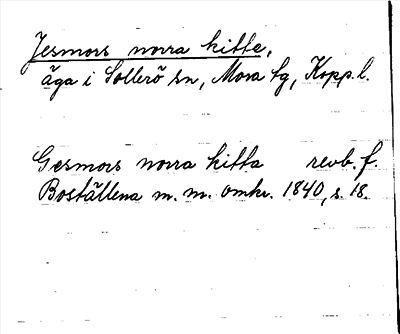 Jesmors norra kitta,
äga i Sollerö sn, Mora tg, Kopp.l.
Gesmors norra kitta revb. f.
Boställena m. m. omkr. 1840, s. 18.